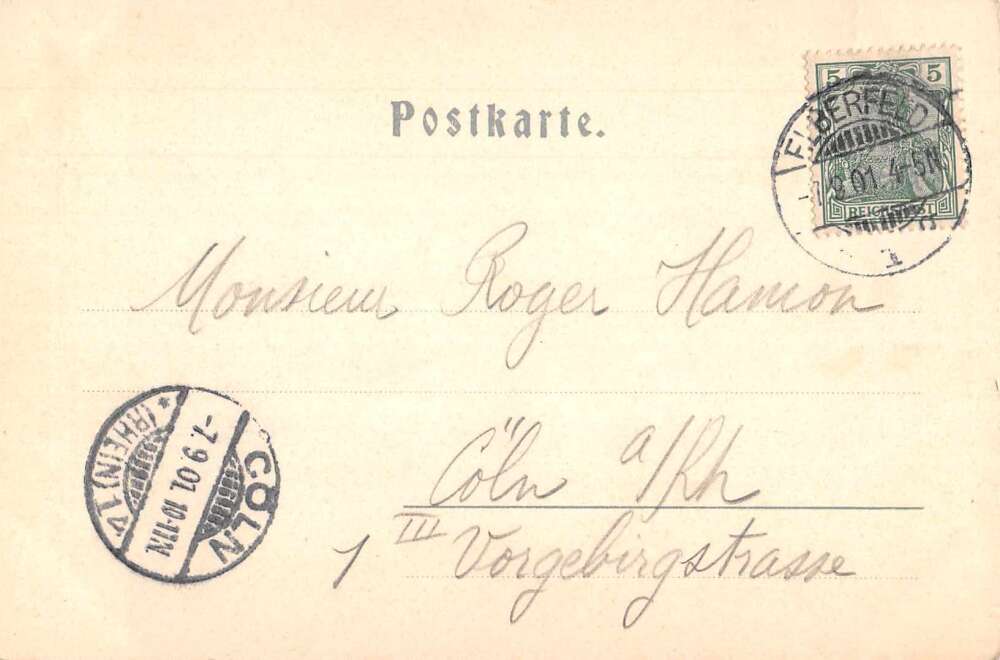 5 5
Postkarte.
ELBERFELD
7.9 01. 4-5N
REICHSPOST
1
Monsieur Roger Hamon
Cöln a/Rh
1 III Vorgebirgstrasse
CÖLN
-7. 9 01. 10-11N.
* (RHEIN) 1.V